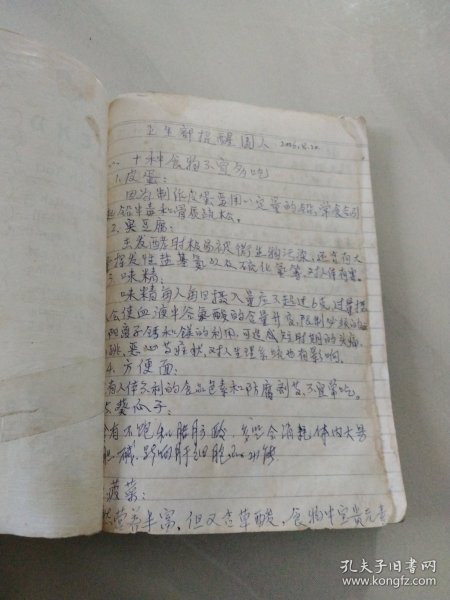 卫生部提醒国人 2006.8.20
一、十种食物不宜多吃
1.皮蛋:
因为制作皮蛋需用一定量的铅,常食会引
起铅中毒和骨质疏松。
2.臭豆腐:
在发酵时极易被微生物污染,还含有大
量挥发性盐基氮以及硫化氢等,对人体有害。
3.味精:
味精每人每日摄入量应不超过6克,过量摄
会使血液中谷氨酸的含量升高,限制必
阳离子钙和镁的利用,可造成短时期的头痛,
跳,恶心等症状,对人生理系统也有影响。
4.方便面:
有人体不利的食品色素和防腐剂等,不宜常吃。
5.葵瓜子:
含有不饱和脂肪酸,多些会消耗体内大量
胆碱,影响肝细胞的功能
菠菜:
然营养丰富,但又含草酸,食物中宝贵元素
孔夫子旧书网
www.kongfz.com